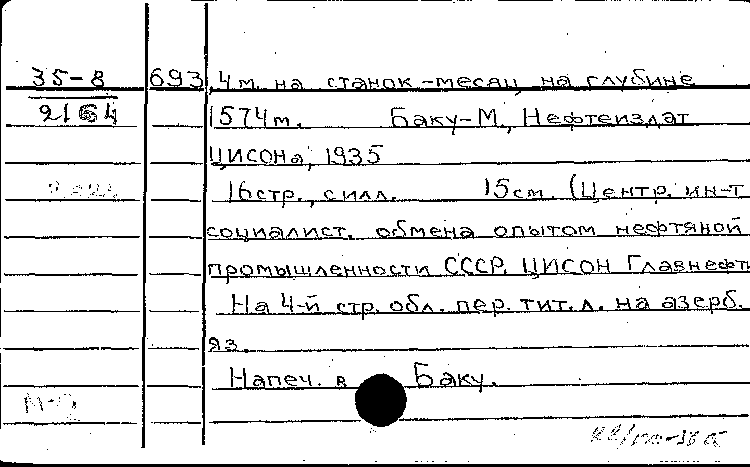 35-8 693,4м. на станок-месяц на глубине
2164 1574м. Баку-М., Нефтеиздат
ЦИСОНа, 1935
16стр., с илл. 15см (Центр. ин-т
социалист. обмена опытом нефтяной
промышленности СССР. ЦИСОН Главнефти
На 4-й стр. обл. пер. тит. л. на азерб.
яз.
Напеч. в Баку.